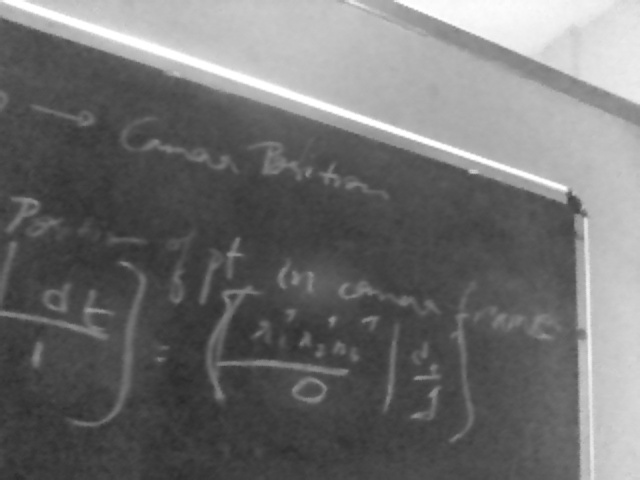 → Camera Position
Position of pt in camera frame
| dt
1 ] = [ | dt
0 | 1 ]